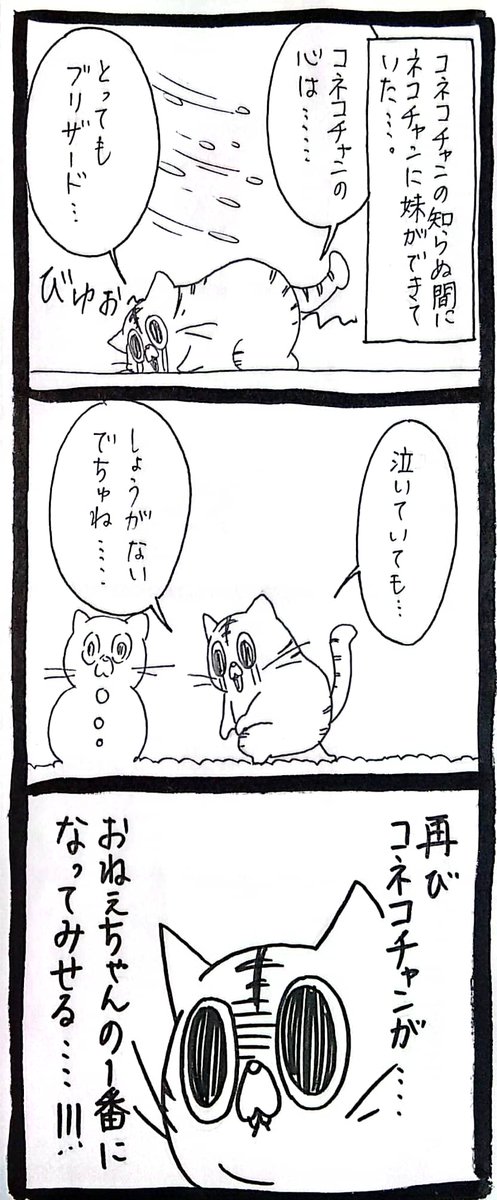 コネコチャンの知らぬ間に
ネコチャンに妹ができて
いた…。
コネコチャンの
心は……
とっても
ブリザード…
びゅお〜
泣いていても…
しょうがない
でちゅね……
再び
コネコチャンが……
おねぇちゃんの1番に
なってみせる……!!!